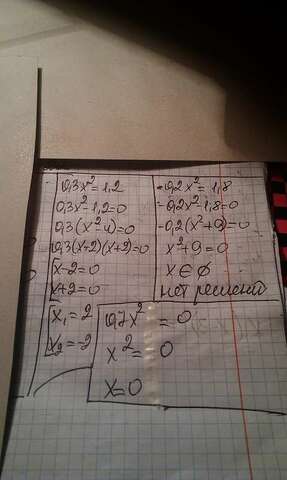 0,3x²=1,2
0,3x²-1,2=0
0,3(x²-4)=0
0,3(x-2)(x+2)=0
x-2=0
x+2=0
x₁=2
x₂=-2
-0,2x²=1,8
-0,2x²-1,8=0
-0,2(x²+9)=0
x²+9=0
x∈∅
нет решений
0,7x²=0
x²=0
x=0